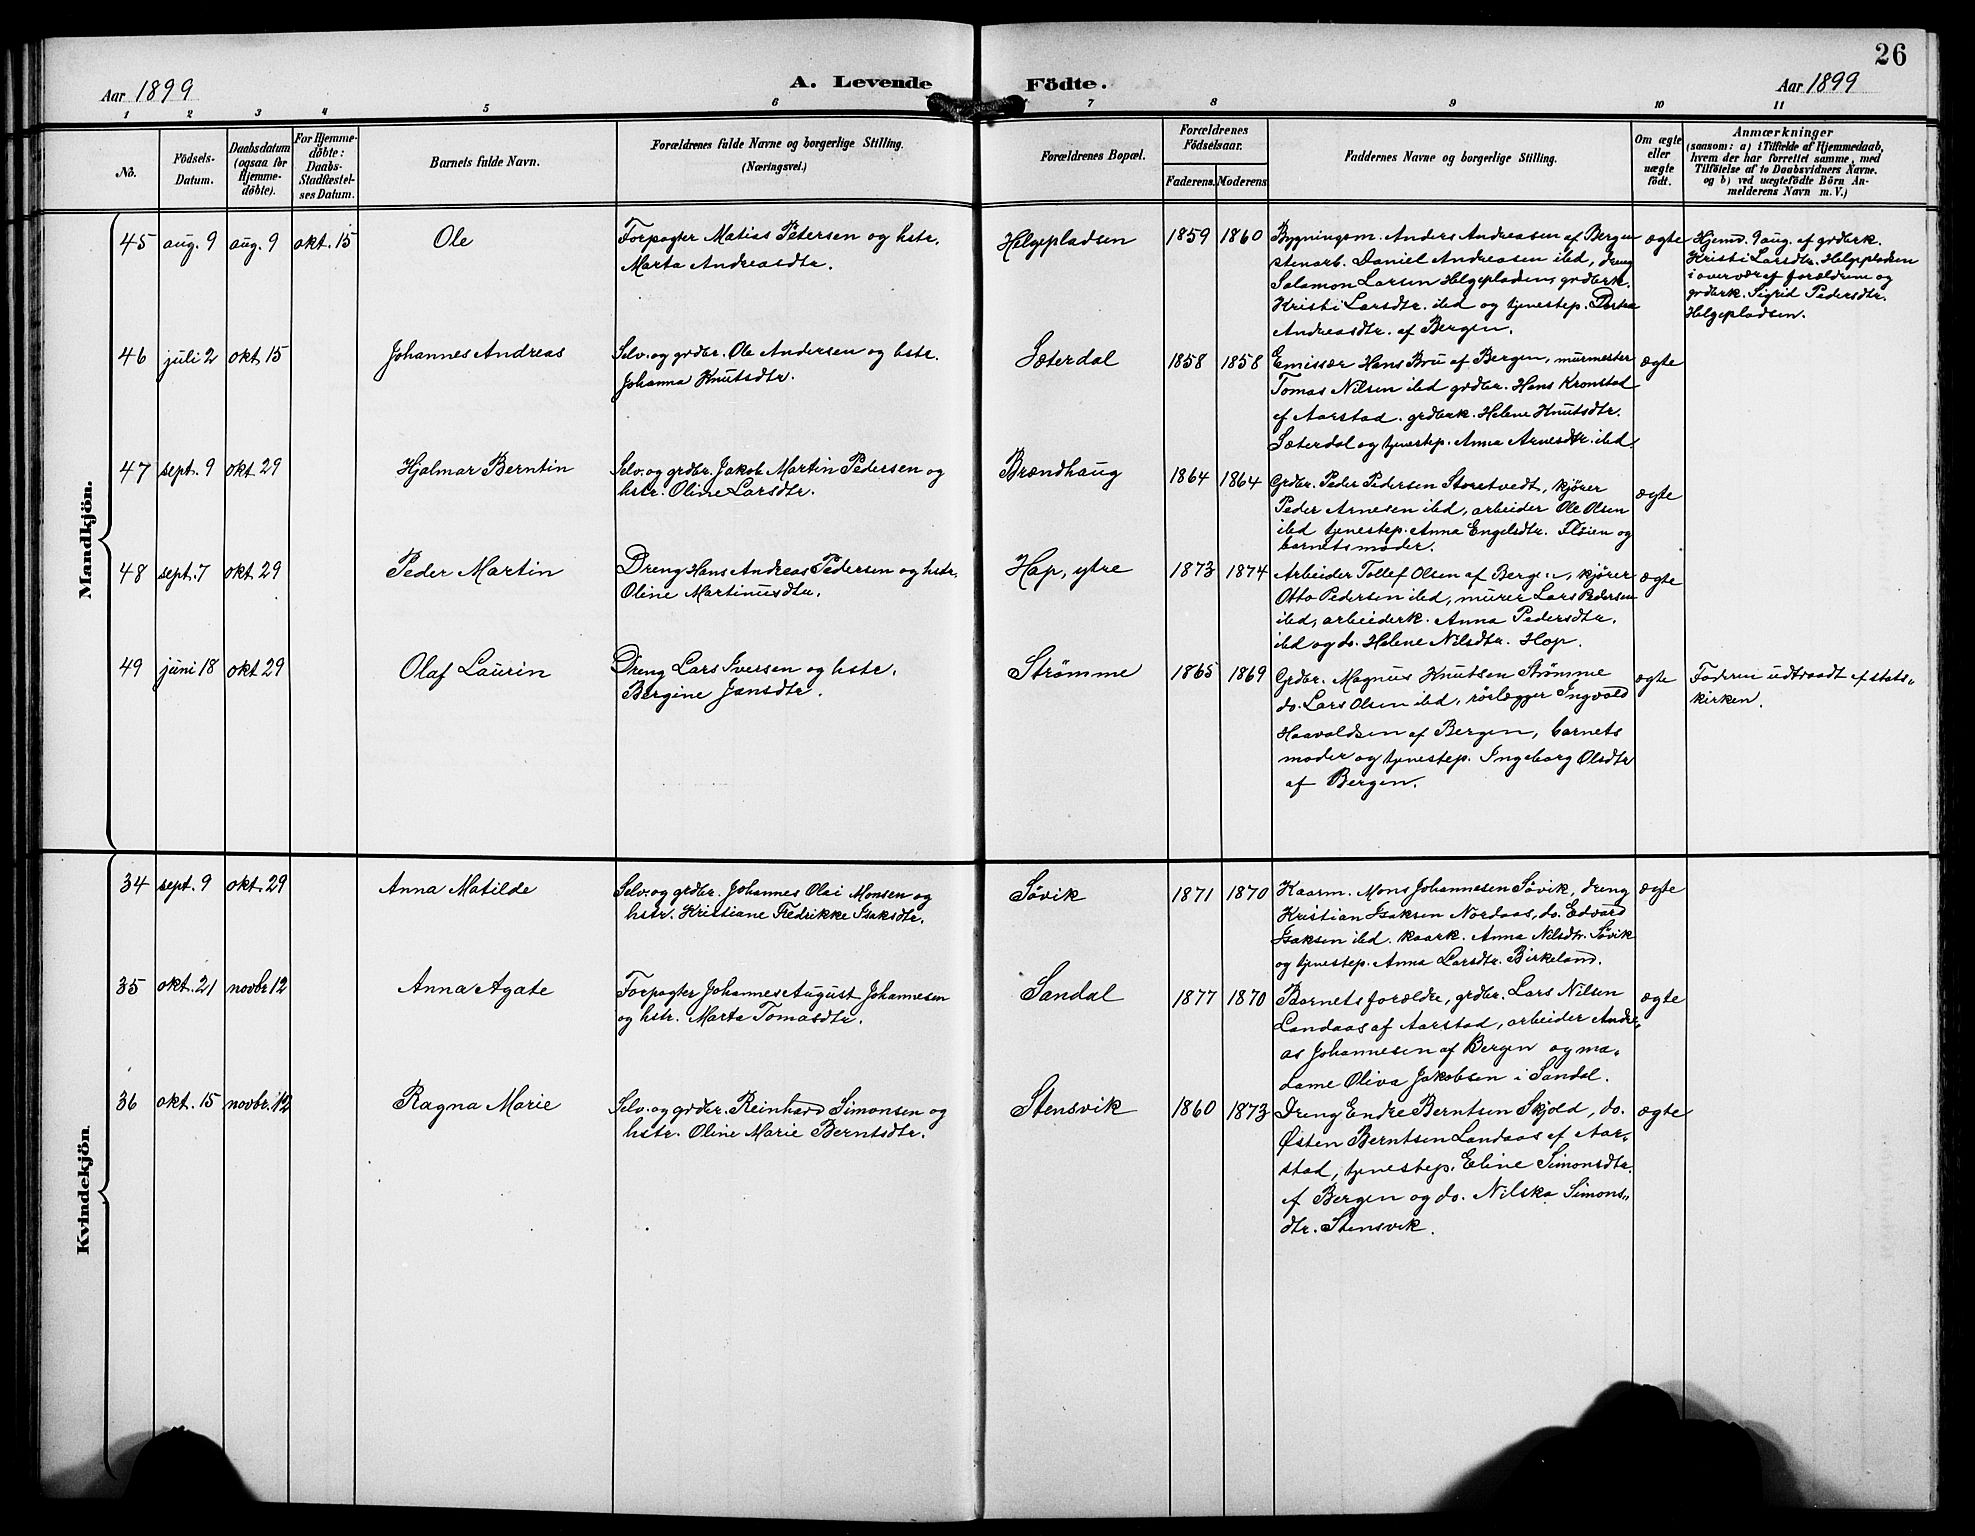 26
Aar 1899
A. Levende Födte.
Aar 1899
1 2 3 4 5 6 7 8 9 10 11
No.
Födsels-
Datum.
Daabsdatum
(ogsaa for
Hjemme-
döbte).
For Hjemme-
döbte:
Daabs-
Stadfæstel-
ses Datum.
Barnets fulde Navn.
Forældrenes fulde Navne og borgerlige Stilling.
(Næringsvei.)
Forældrenes Bopæl.
Forældrenes
Födselsaar.
Faderens. Moderens.
Faddernes Navne og borgerlige Stilling.
Om ægte
eller
uægte
födt.
Anmærkninger
(saasom: a) i Tilfælde af Hjemmedaab,
hvem der har forrettet samme, med
Tilföielse af to Daabsvidners Navne.
og b) ved uægtefödte Börn An-
melderens Navn m. V.)
Mandkjön.
45 aug. 9 aug. 9 okt. 15 Ole
Forpagter Matias Petersen og hstr.
Marta Andreasdtr.
Helgepladsen 1859 1860
Bygningsm. Anders Andreasen af Bergen
stenarb. Daniel Andreasen ibd, dreng
Salomon Larsen Helgepladsen, grdbrk.
Kristi Larsdtr. ibd og tjenestep.
Andreasdtr. af Bergen.
ægte
Hjemd. 9 aug. af grdbrk.
Kristi Larsdtr. Helgepladsen
i overvær af forældrene og
grdbrk. Sigrid Pedersdtr.
Helgepladsen.
46 juli 2 okt. 15 Johannes Andreas
Selv. og grdbr. Ole Andersen og hstr.
Johanna Knutsdtr.
Sæterdal 1858 1858
Emissær Hans Bru af Bergen, murmester
Tomas Nilsen ibd grdbr. Hans Kronstad
af Aarstad. grdbrk. Helene Knutsdtr.
Sæterdal og tjenestep. Anna Arnesdtr. ibd.
ægte
47 sept. 9 okt. 29 Hjalmar Berntin
Selv. og grdbr. Jakob Martin Pedersen og
hstr. Oline Larsdtr.
Brændhaug 1864 1864
Grdbr. Peder Pedersen Storetvedt, kjører
Peder Arnesen ibd, arbeider Ole Olsen
ibd tjenestep. Anna Engelsdtr. Fløien og
barnets moder.
ægte
48 sept. 7 okt. 29 Peder Martin
Dreng Hans Andreas Pedersen og hstr.
Oline Martinusdtr.
Hop, ytre 1873 1874
Arbeider Tollef Olsen af Bergen, kjører
Otto Pedersen ibd, murer Lars Pedersen
ibd, arbeiderk. Anna Pedersdtr.
ibd og do. Helene Nilsdtr. Hop.
ægte
49 juni 18 okt. 29 Olaf Laurin
Dreng Lars Iversen og hstr.
Bergine Jansdtr.
Strømme 1865 1869
Grdbr. Magnus Knutsen Strømme
do. Lars Olsen ibd, rørlægger Ingvald
Haavaldsen af Bergen, barnets
moder og tjenestep. Ingeborg Olsdtr
af Bergen.
ægte
Faderen udtraadt af stats-
kirken.
Kvindekjön.
34 sept. 9 okt. 29 Anna Matilde
Selv. og grdbr. Johannes Olai Monsen og
hstr. Kristiane Fredrikke Isaksdtr.
Søvik 1871 1870
Kaarm. Mons Johannesen Søvik, dreng
Kristian Isaksen Nordaas, do. Edvard
Isaksen ibd. kaark. Anna Nilsdtr. Søvik
og tjenestep. Anna Larsdtr. Birkeland.
ægte
35 okt. 21 novbr 12 Anna Agate
Forpagter Johannes August Johannesen
og hstr. Marta Tomasdtr.
Sandal 1877 1870
Barnets forældre, grdbr. Lars Nilsen
Landaas af Aarstad, arbeider Andre-
as Johannesen af Bergen og ma-
dame Oliva Jakobsen i Sandal.
ægte
36 okt. 15 novbr. 12 Ragna Marie
Selv. og grdbr. Reinhard Simonsen og
hstr. Oline Marie Berntsdtr.
Stensvik 1860 1873
Dreng Endre Berntsen Skjold, do.
Østen Berntsen Landaas af Aar-
stad, tjenestep. Eline Simonsdtr.
af Bergen og do. Nilska Simons-
dtr. Stensvik.
ægte